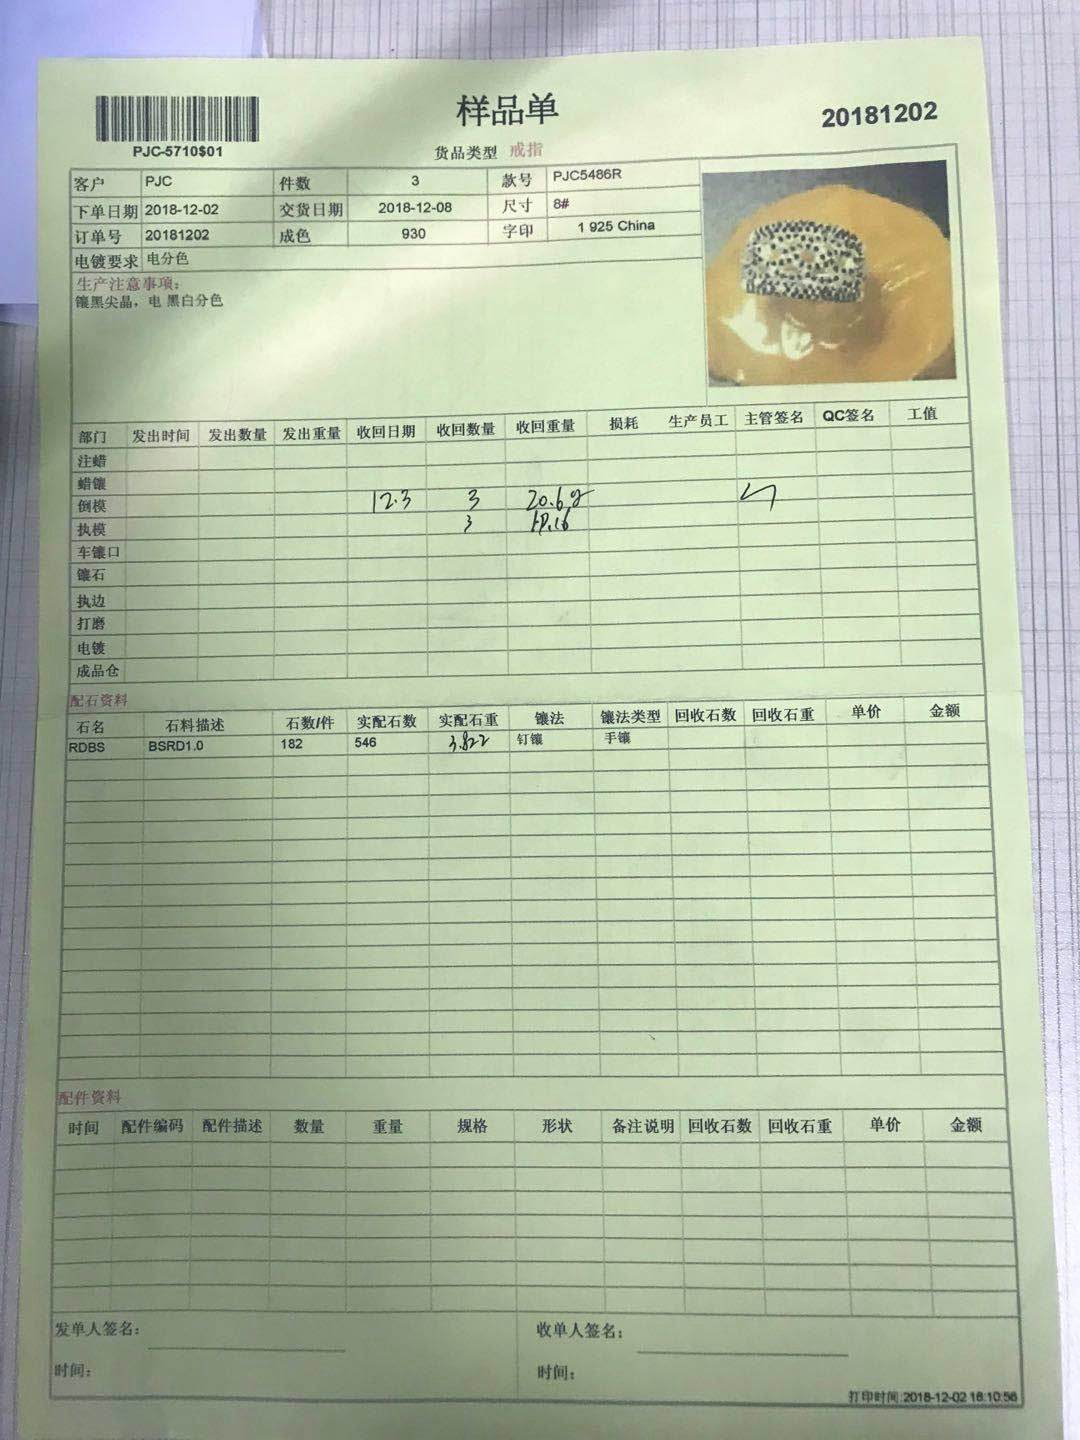 样品单
20181202
PJC-5710$01
货品类型 戒指
客户 PJC 件数 3 款号 PJC5486R
下单日期 2018-12-02 交货日期 2018-12-08 尺寸 8#
订单号 20181202 成色 930 字印 1 925 China
电镀要求 电分色
生产注意事项:
镶黑尖晶，电 黑白分色
部门 发出时间 发出数量 发出重量 收回日期 收回数量 收回重量 损耗 生产员工 主管签名 QC签名 工值
注蜡
蜡镶
倒模 12.3 3 20.6g
执模 3
车镶口
镶石
执边
打磨
电镀
成品仓
配石资料
石名 石料描述 石数/件 实配石数 实配石重 镶法 镶法类型 回收石数 回收石重 单价 金额
RDBS BSRD1.0 182 546 3.822 钉镶 手镶
配件资料
时间 配件编码 配件描述 数量 重量 规格 形状 备注说明 回收石数 回收石重 单价 金额
发单人签名: 收单人签名:
时间: 时间:
打印时间:2018-12-02 16:10:56